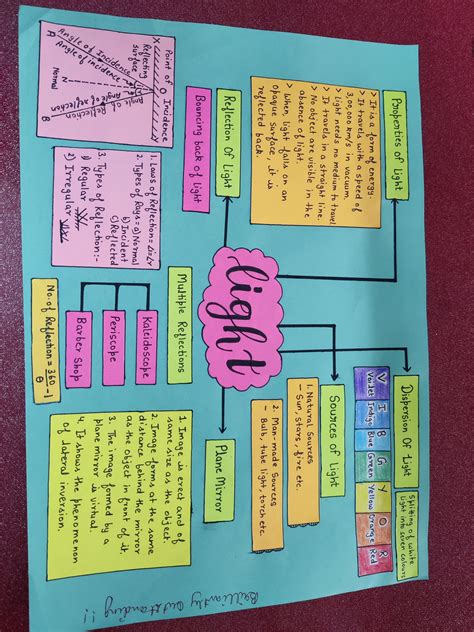 light
Properties of Light
> It is a form of energy.
> It travels with a speed of
3,00,000 km/s in vacuum.
> Light needs no medium to travel
> It travels in a straight line.
> No object are visible in the
absence of light.
> When light falls on an
opaque surface, it is
reflected back.
Reflection Of Light
Bouncing back of light
Point of Incidence
X
O
Reflecting
surface
Angle of Incidence
Angle of incidence
A
N
Normal
Angle of reflection
Angle of Reflection
B
1. Laws of Reflection = ∠i=∠r
2. Types of Rays = a) Normal
b) Incident
c) Reflected
3. Types of Reflection:-
i) Regular
ii) Irregular
Multiple Reflections
Kaleidoscope
Periscope
Barber Shop
No. of Reflection = 360/θ - 1
Dispersion Of Light
Splitting of white
Light into seven colours
V I B G Y O R
Violet Indigo Blue Green Yellow Orange Red
Sources of Light
1. Natural Sources
- Sun, stars, fire etc.
2. Man-made Sources
- Bulb, tube light, torch etc.
Plane Mirror
1. Image is erect and of
same size as the object
2. Image forms at the same
distance behind the mirror
as the object in front of it.
3. The image formed by a
plane mirror is virtual.
4. It shows the phenomenon
of lateral inversion.
Brilliantly outstanding !!